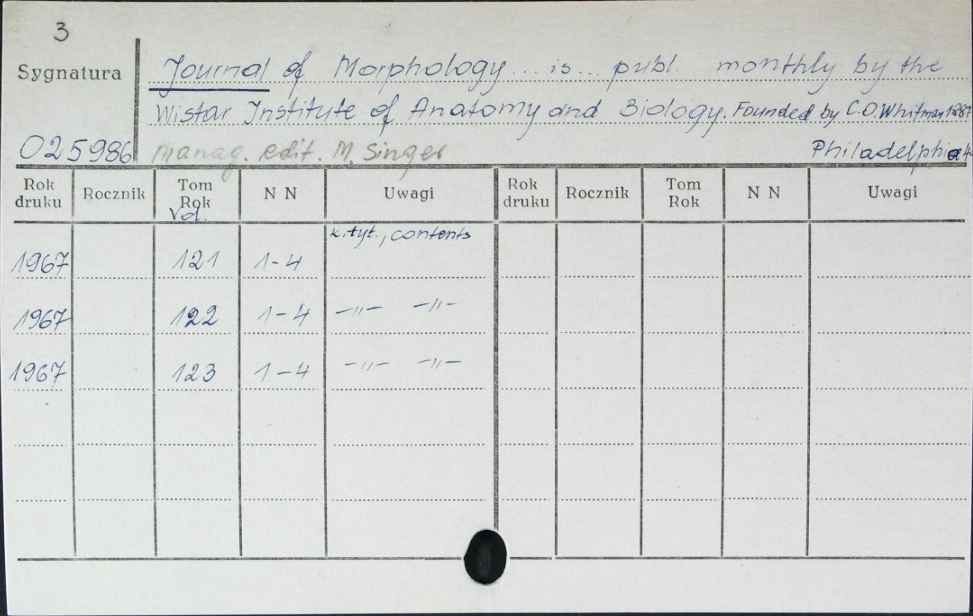 3
Sygnatura
Journal of Morphology ... is ... publ monthly by the
Wistar Institute of Anatomy and Biology. Founded by C.O. Whitman 1887
025986 manag. edit. M. Singer Philadelphia
Rok druku Rocznik Tom Rok Vol. N N Uwagi Rok druku Rocznik Tom Rok N N Uwagi
k. tyt., contents
1967 121 1-4
1967 122 1-4 -"- -"-
1967 123 1-4 -"- -"-